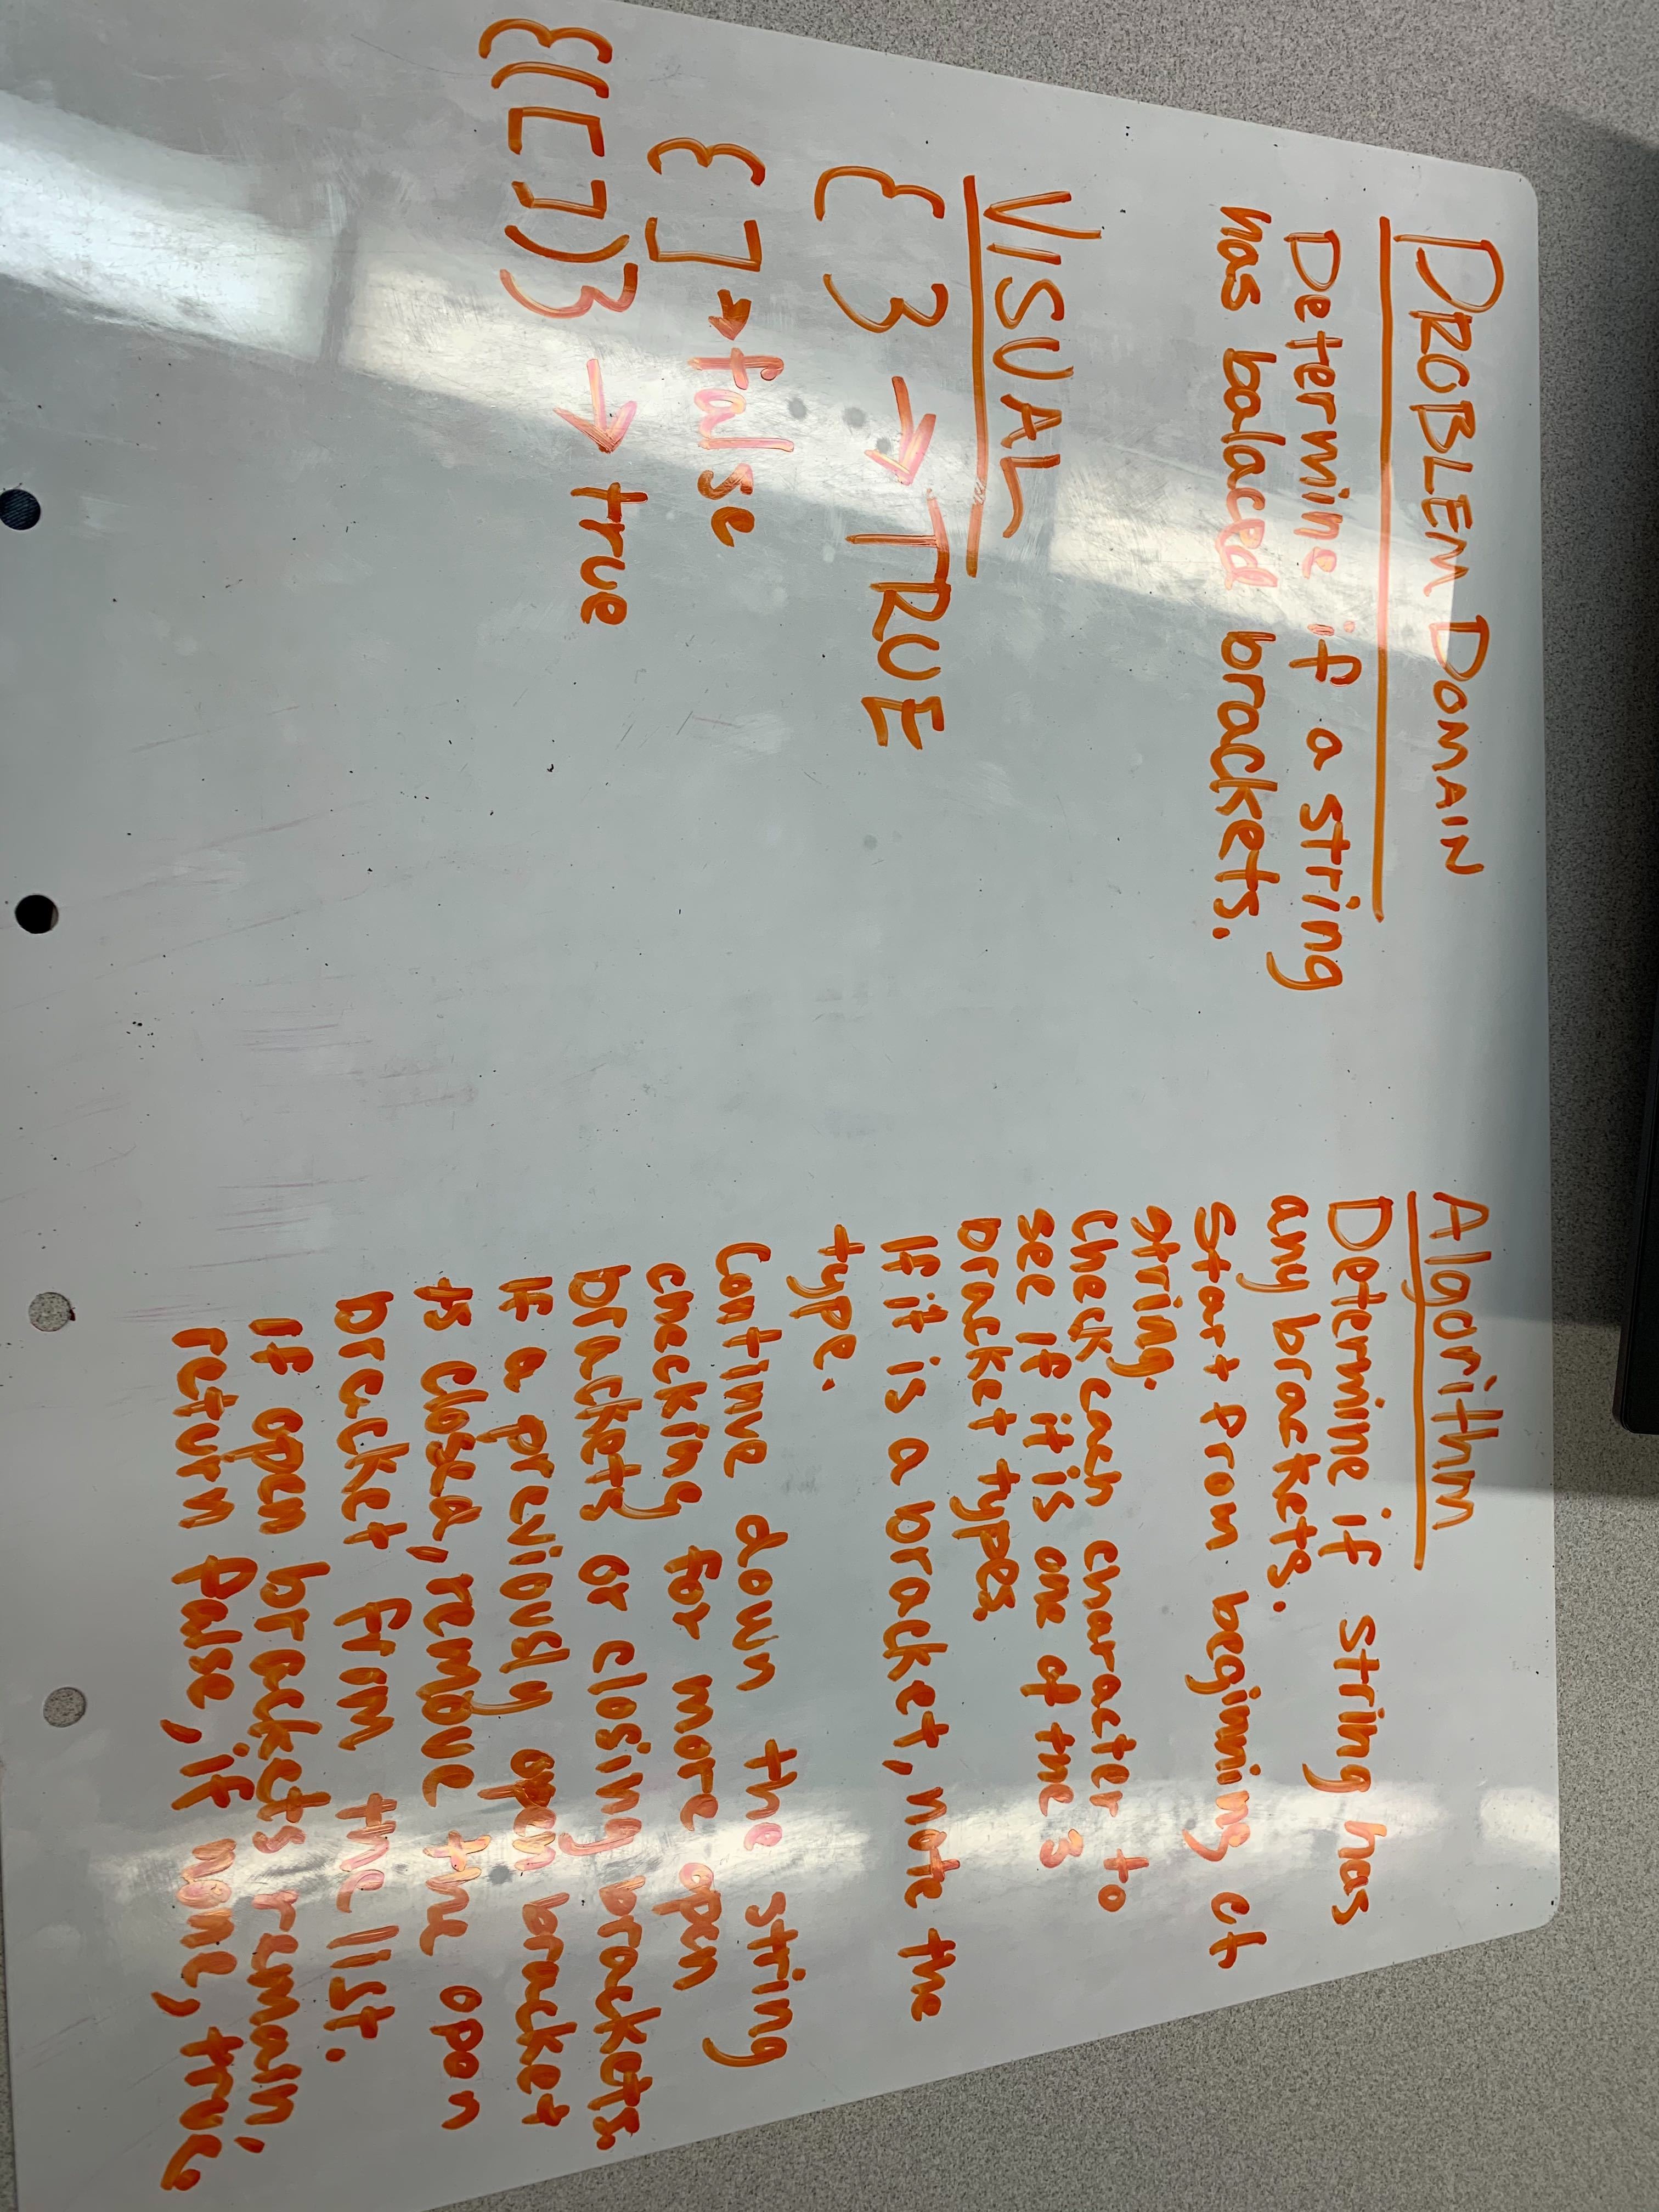 PROBLEM DOMAIN
Determine if a string
has balaced brackets.
VISUAL
{ } → TRUE
{ ] → false
{([])} → true
Algorithm
Determine if string has
any brackets.
Start from beginning of
string.
Check each character to
see if it is one of the 3
bracket types.
If it is a bracket, note the
type.
Continue down the string
checking for more open
brackets or closing brackets.
If a previously open bracket
is closed, remove the open
bracket from the list.
If open brackets remain,
return false, if none, true